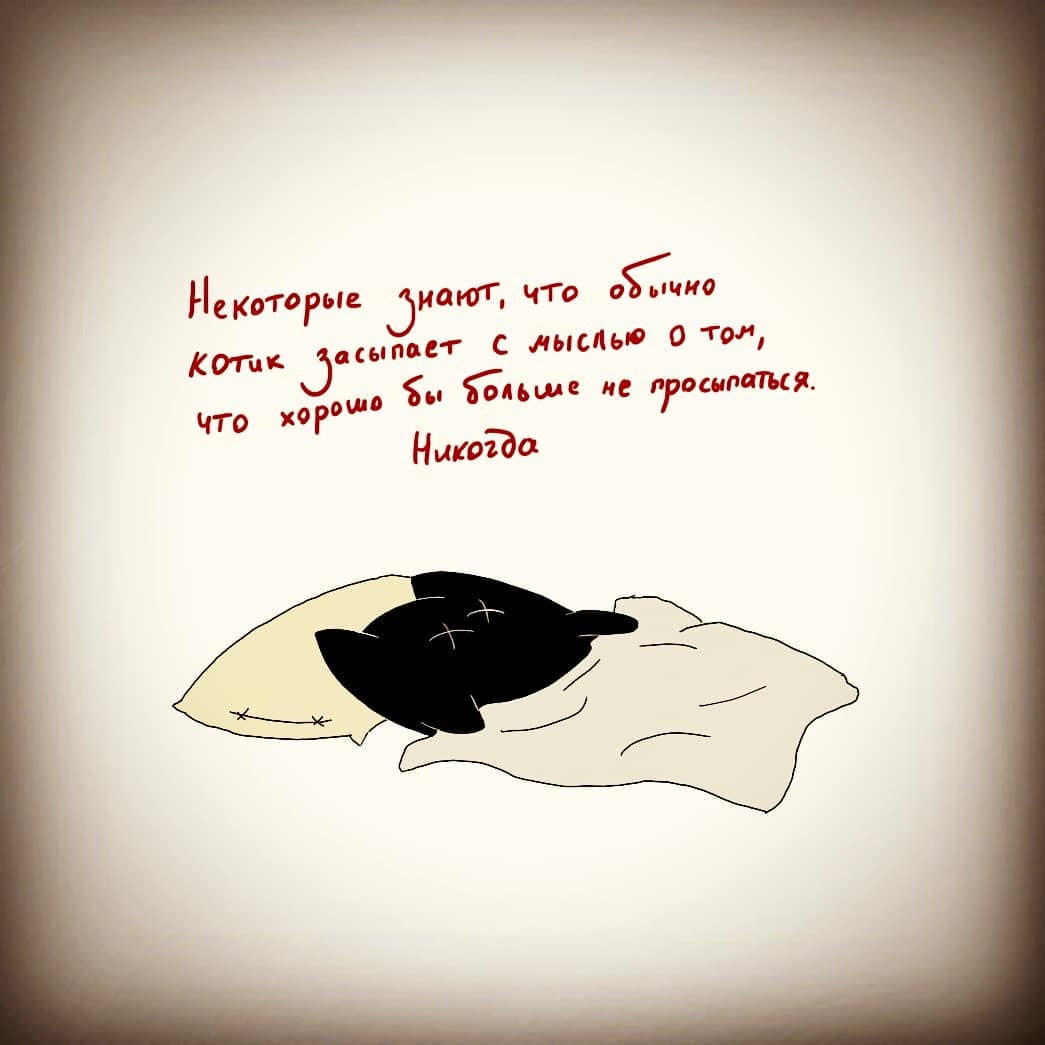 Некоторые знают, что обычно
котик засыпает с мыслью о том,
что хорошо бы больше не просыпаться.
Никогда